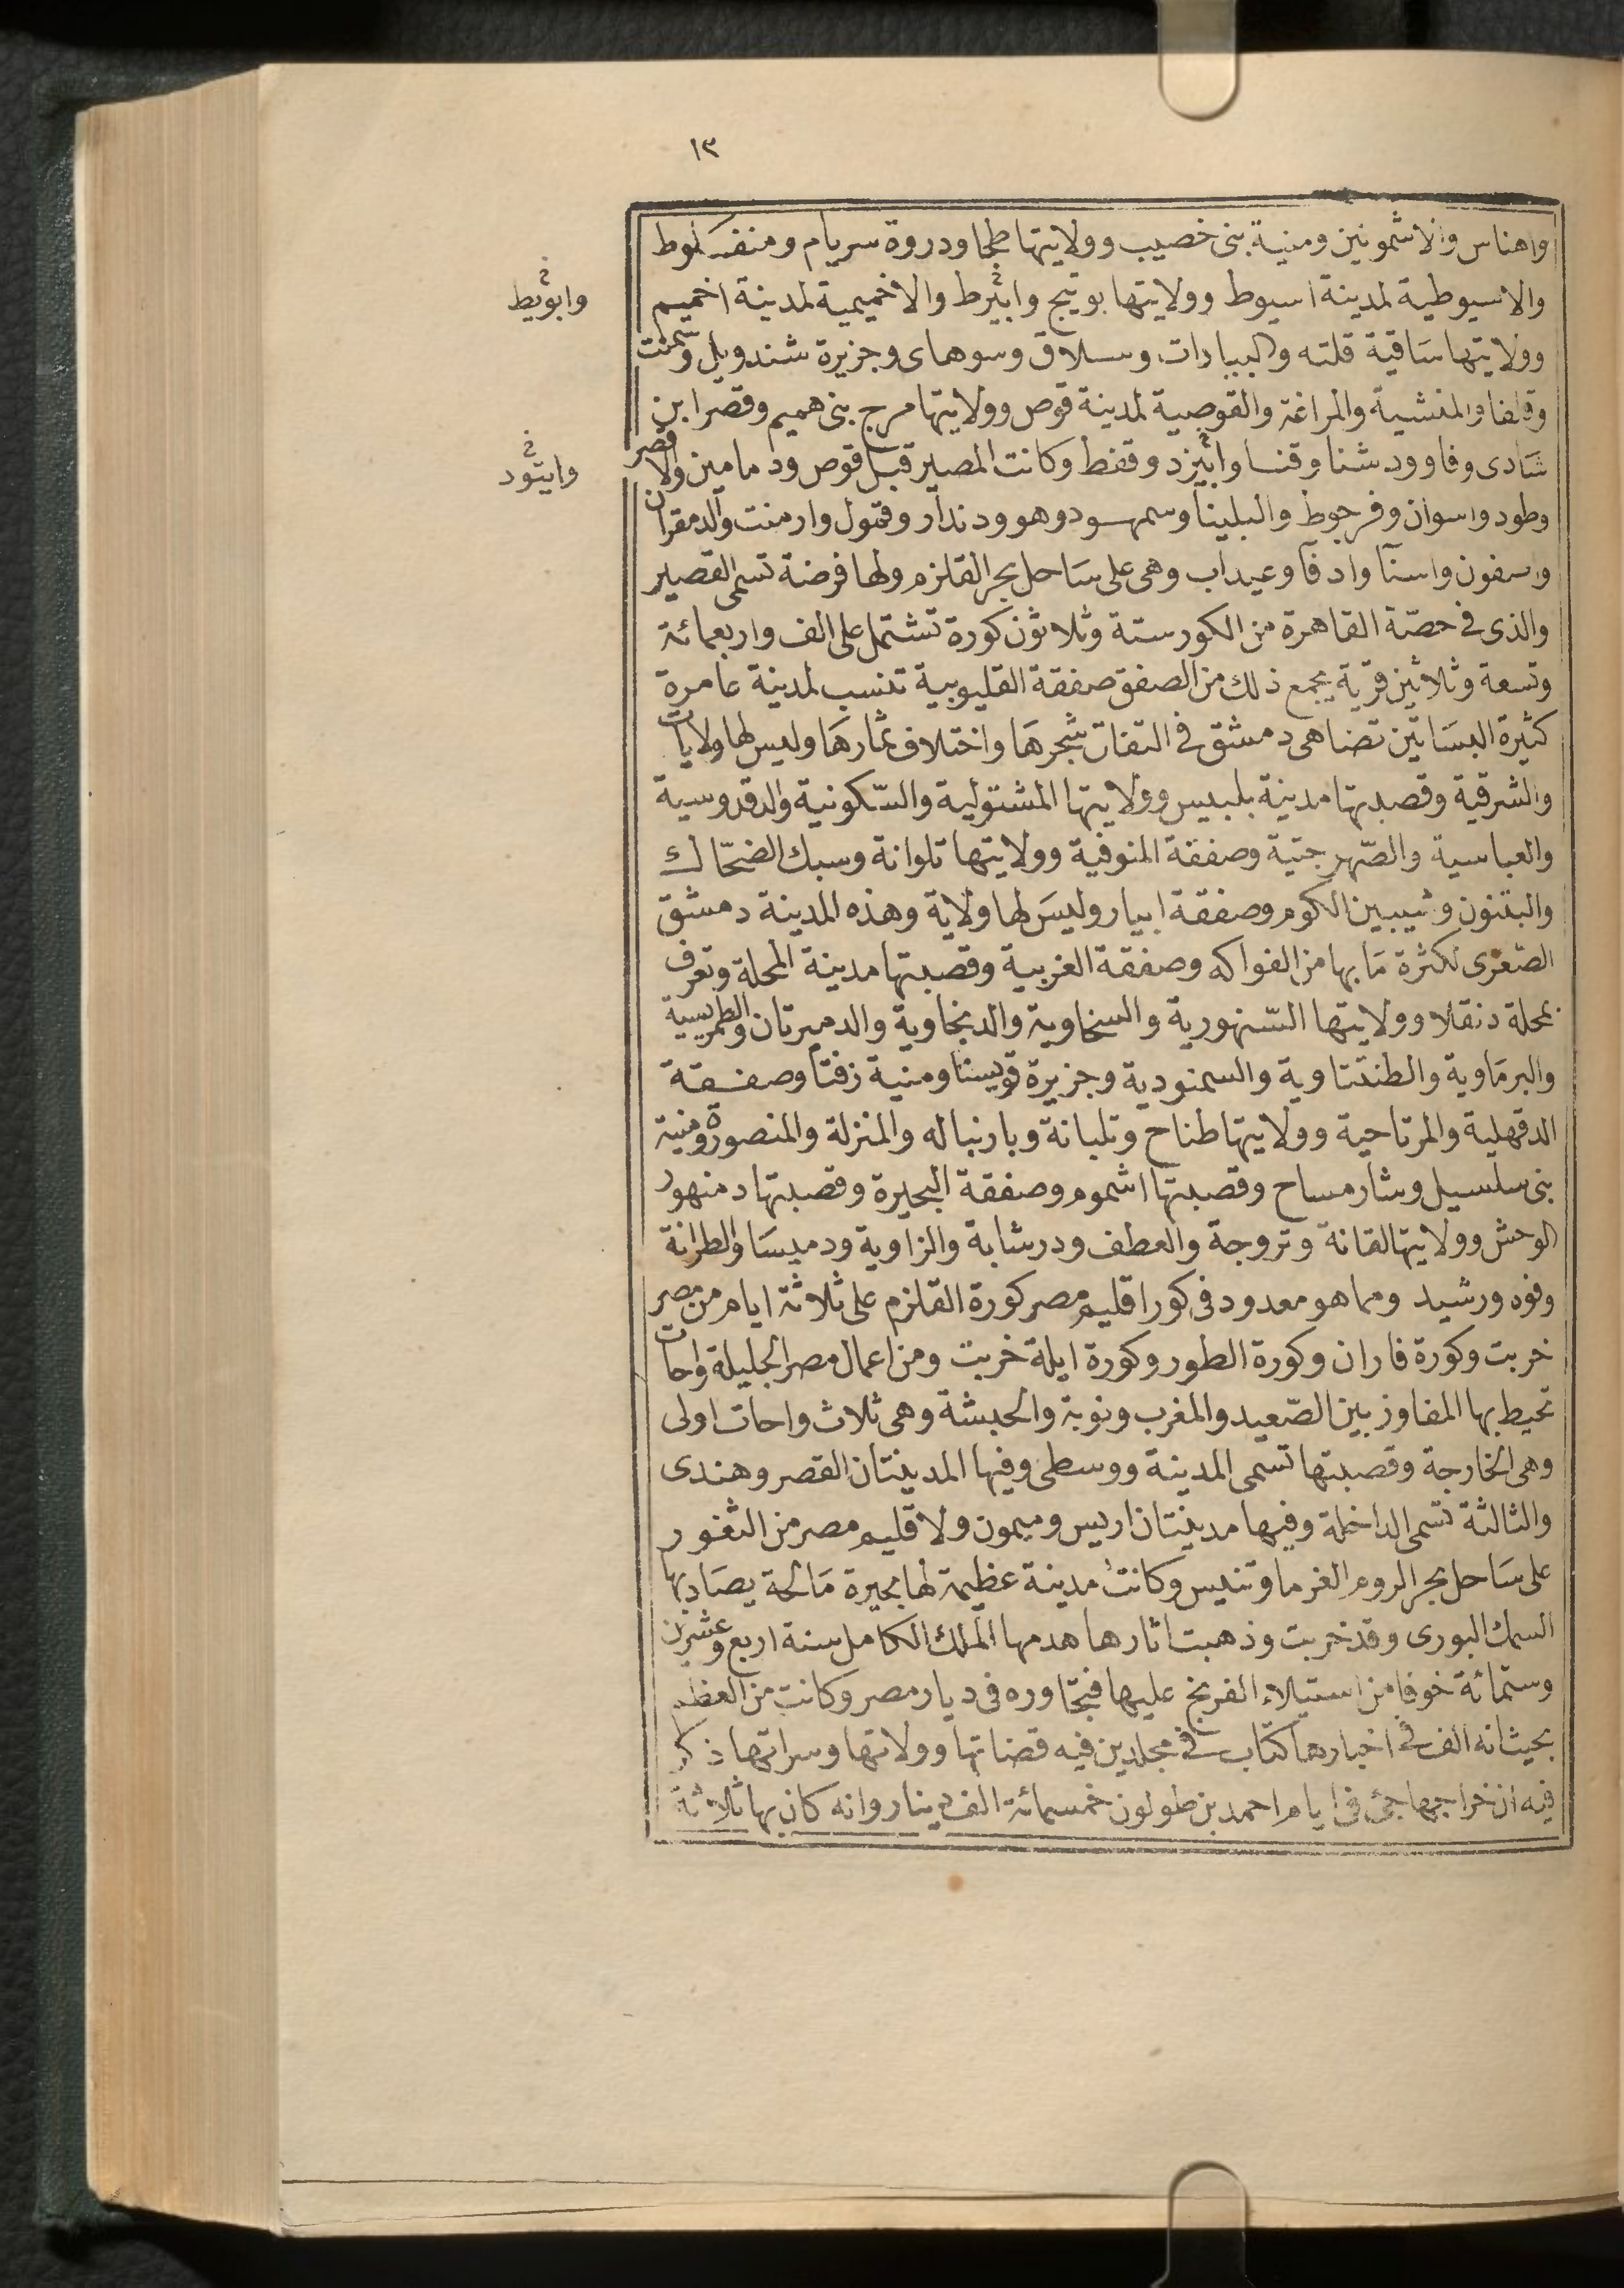 ١٣
واهناس والاشمونين ومنية بنى خصيب وولايتها طحا ودروة سريام ومنفلوط
والاسيوطية لمدينة اسيوط وولايتها بوتيج وابثرط والاخميمية لمدينة اخميم
وابويط
وولايتها ساقية قلته والبيادات وسلاق وسوهاى وجزيرة شندويل وسمنت
وقلفا والمنشية والمراغة والقوصية لمدينة قوص وولايتها مرج بنى هميم وقصر ابن
شادى وفاو ودشنا وقنا وابيزد وقفط وكانت المصير قبل قوص ودمامين والاقصر
وايتود
وطود واسوان وفرجوط والبلينا وسمهود وهو ودندار وقمول وارمنت والدمقران
واسفون واسنا وادفا وعيداب وهى على ساحل بحر القلزم ولها فرضة تسمى القصير
والذى فى حصّة القاهرة من الكور ستة وثلاثون كورة تشتمل على الف واربعمائة
وتسعة وثلاثين قرية يجمع ذلك من الصفق صفقة القليوبية تنسب لمدينة عامرة
كثيرة البساتين تضاهى دمشق فى التفات شجرها واختلاف ثمارها وليس لها ولايات
والشرقية وقصبتها مدينة بلبيس وولايتها المشتولية والسّكونية والدقدوسية
والعباسية والصّهرجتية وصفقة المنوفية وولايتها تلوانة وسبك الضحّاك
والبتنون وشيبين الكوم وصفقة ابيار وليس لها ولاية وهذه المدينة دمشق
الصّغرى لكثرة ما بها من الفواكه وصفقة الغربية وقصبتها مدينة المحلة وتعرف
بمحلة دنقلا وولايتها السّنهورية والسخاوية والدنجاوية والدميرتان والطمريسية
والبرماوية والطنتتاوية والسمنودية وجزيرة قويسنا ومنية زفتا وصفقة
الدقهلية والمرتاحية وولايتها طناح وتلبانة وبارنباله والمنزلة والمنصورة ومنية
بنى سلسيل وشارمساح وقصبتها اشموم وصفقة البحيرة وقصبتها دمنهور
الوحش وولايتها لقانة وتروجة والعطف ودرشابة والزاوية ودميسا والطرانة
وفوه ورشيد ومما هو معدود فى كور اقليم مصر كورة القلزم على ثلاثة ايام من مصر
خربت وكورة فاران وكورة الطور وكورة ايلة خربت ومن اعمال مصر الجليلة واحات
تحيط بها المفاوز بين الصّعيد والمغرب ونوبة والحبشة وهى ثلاث واحات اولى
وهى الخارجة وقصبتها تسمى المدينة ووسطى وفيها المدينتان القصر وهندى
والثالثة تسمى الداخلة وفيها مدينتان اريس وميمون ولاقليم مصر من الثغور
على ساحل بحر الروم الفرما وتنيس وكانت مدينة عظيمة لها بحيرة مالحة يصاد بها
السمك البورى وقد خربت وذهبت اثارها هدمها الملك الكامل سنة اربع وعشرين
وستمائة خوفا من استيلاء الفرنج عليها فتجاوره فى ديار مصر وكانت من العظم
بحيث انه الف فى اخبارها كتاب فى مجلدين فيه قضاتها وولاتها وسراتها ذكر
فيه ان خراجها جئ فى ايام احمد بن طولون خمسمائة الف دينار وانه كان بها ثلاثة